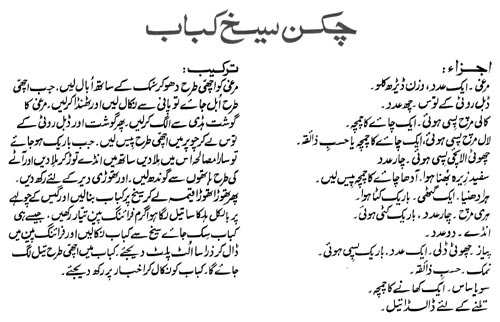 چکن سیخ کباب
اجزاء:
مرغی۔ ایک عدد، وزن ڈیڑھ کلو۔
ڈبل روٹی کے توس۔ چھ عدد۔
کالی مرچ پسی ہوئی۔ ایک چائے کا چمچہ۔
لال مرچ پسی ہوئی۔ ایک چائے کا چمچہ یا حسب ذائقہ۔
چھوٹی الائچی پسی ہوئی۔ چار عدد۔
سفید زیرہ بھنا ہوا۔ آدھا چائے کا چمچہ پیس لیں۔
ہرا دھنیا۔ ایک گٹھی۔ باریک کٹا ہوا۔
ہری مرچ۔ چار عدد، باریک کٹی ہوئی۔
انڈے۔ دو عدد۔
پیاز چھوٹی ڈلی۔ ایک عدد، باریک پسی ہوئی۔
نمک۔ حسب ذائقہ۔
سویا ساس۔ ایک کھانے کا چمچہ۔
تلنے کے لئے ڈالڈا تیل۔
ترکیب:
مرغی کو اچھی طرح دھو کر نمک کے ساتھ اُبال لیں، جب اچھی
طرح اُبل جائے تو پانی سے نکال لیں اور ٹھنڈا کر لیں۔ مرغی کا
گوشت ہڈی سے الگ کر لیں۔ پھر گوشت اور ڈبل روٹی کے
توس لے کر چوپر میں اچھی طرح پیس لیں۔ جب باریک ہو جائے
تو سارا مصالحہ اس میں ملا دیں ساتھ میں انڈے توڑ کر ملا دیں اور آٹے
کی طرح ہاتھوں سے گوندھ لیں۔ اور تھوڑی دیر کے لئے رکھ دیں۔
پھر تھوڑا تھوڑا قیمہ لے کر سیخ پر کباب بنا لیں اور گیس کے چولہے
پر بالکل ہلکا سا تیل لگا ہوا گرم فرائنگ پین تیار رکھیں، جیسے ہی
کباب سِک جائے سیخ سے کباب نکالیں اور فرائنگ پین میں
ڈال کر ذرا سا الٹ پلٹ دیجئے۔ کباب میں اچھی طرح تیل لگ
جائے گا۔ کباب کو نکال کر اخبار پر رکھ دیجئے۔